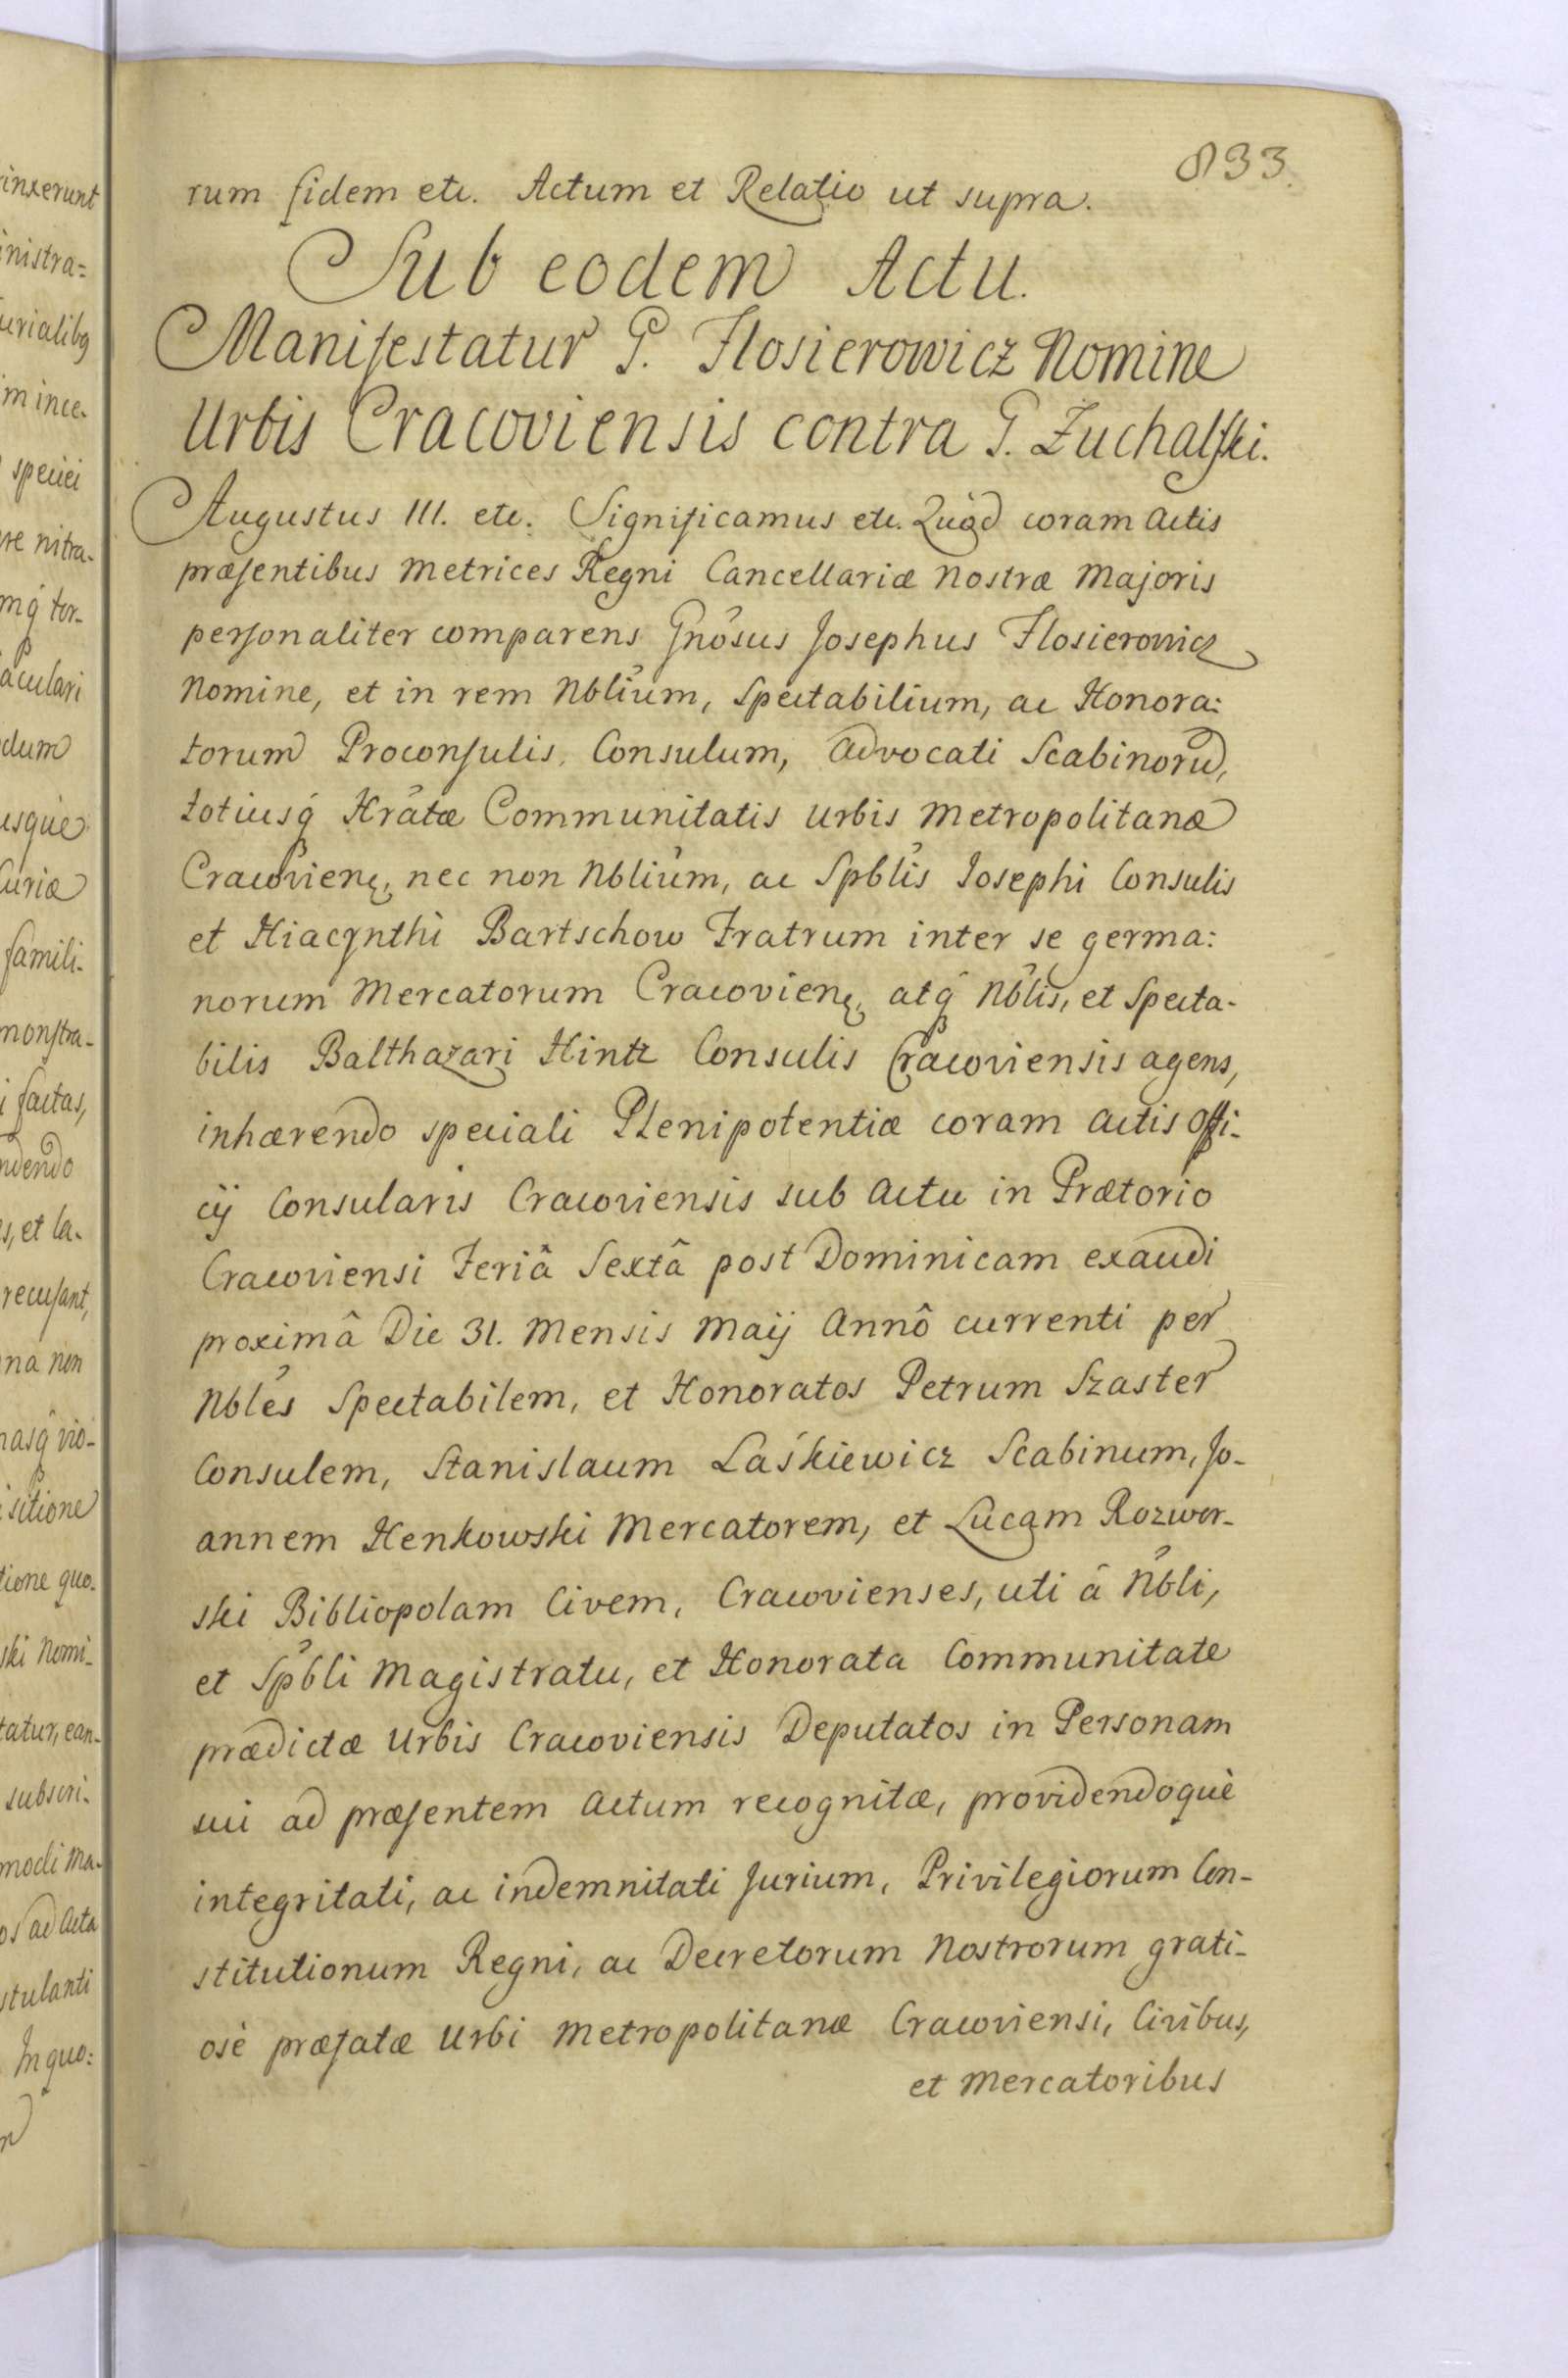 893.
rum fidem etc. Actum et Relatio ut supra.
Sub eodem Actu.
Manifestatur G. Flosierowicz Nomine
Urbis Cracoviensis contra G. Zuchalski.
Augustus III. etc. Significamus etc. Quòd coram Actis
præsentibus Metrices Regni Cancellariæ Nostræ Majoris
personaliter comparens Gnõsus Josephus Flosierowicz
Nomine, et in rem Nblium, Spectabilium, ac Honora:
torum Proconsulis, Consulum, Advocati Scabinorũ,
totiusq́ Hrãtæ Communitatis Urbis Metropolitanæ
Cracovienę, nec non Nblium, ac Spblis Josephi Consulis
et Hiacynthi Bartschow Fratrum inter se germa:
norum Mercatorum Cracovienę, atq́ Nblis, et Specta-
bilis Balthazari Hintz Consulis Cracoviensis agens,
inhærendo speciali Plenipotentiæ coram Actis Offi-
cij Consularis Cracoviensis sub Actu in Prætorio
Cracoviensi Feriâ Sextâ post Dominicam exaudi
proximâ Die 31. Mensis Maij Annô currenti per
Nbles Spectabilem, et Honoratos Petrum Szaster
Consulem, Stanislaum Laśkiewicz Scabinum, Jo-
annem Henkowski Mercatorem, et Lucam Rozwor-
ski Bibliopolam Civem, Cracovienses, uti â Nbli,
et Spbli Magistratu, et Honorata Communitate
prædictæ Urbis Cracoviensis Deputatos in Personam
sui ad præsentem Actum recognitæ, providendoquè
integritati, ac indemnitati Jurium, Privilegiorum Con-
stitutionum Regni, ac Decretorum Nostrorum grati-
osè præfatæ Urbi Metropolitanæ Cracoviensi, Civibus,
et Mercatoribus